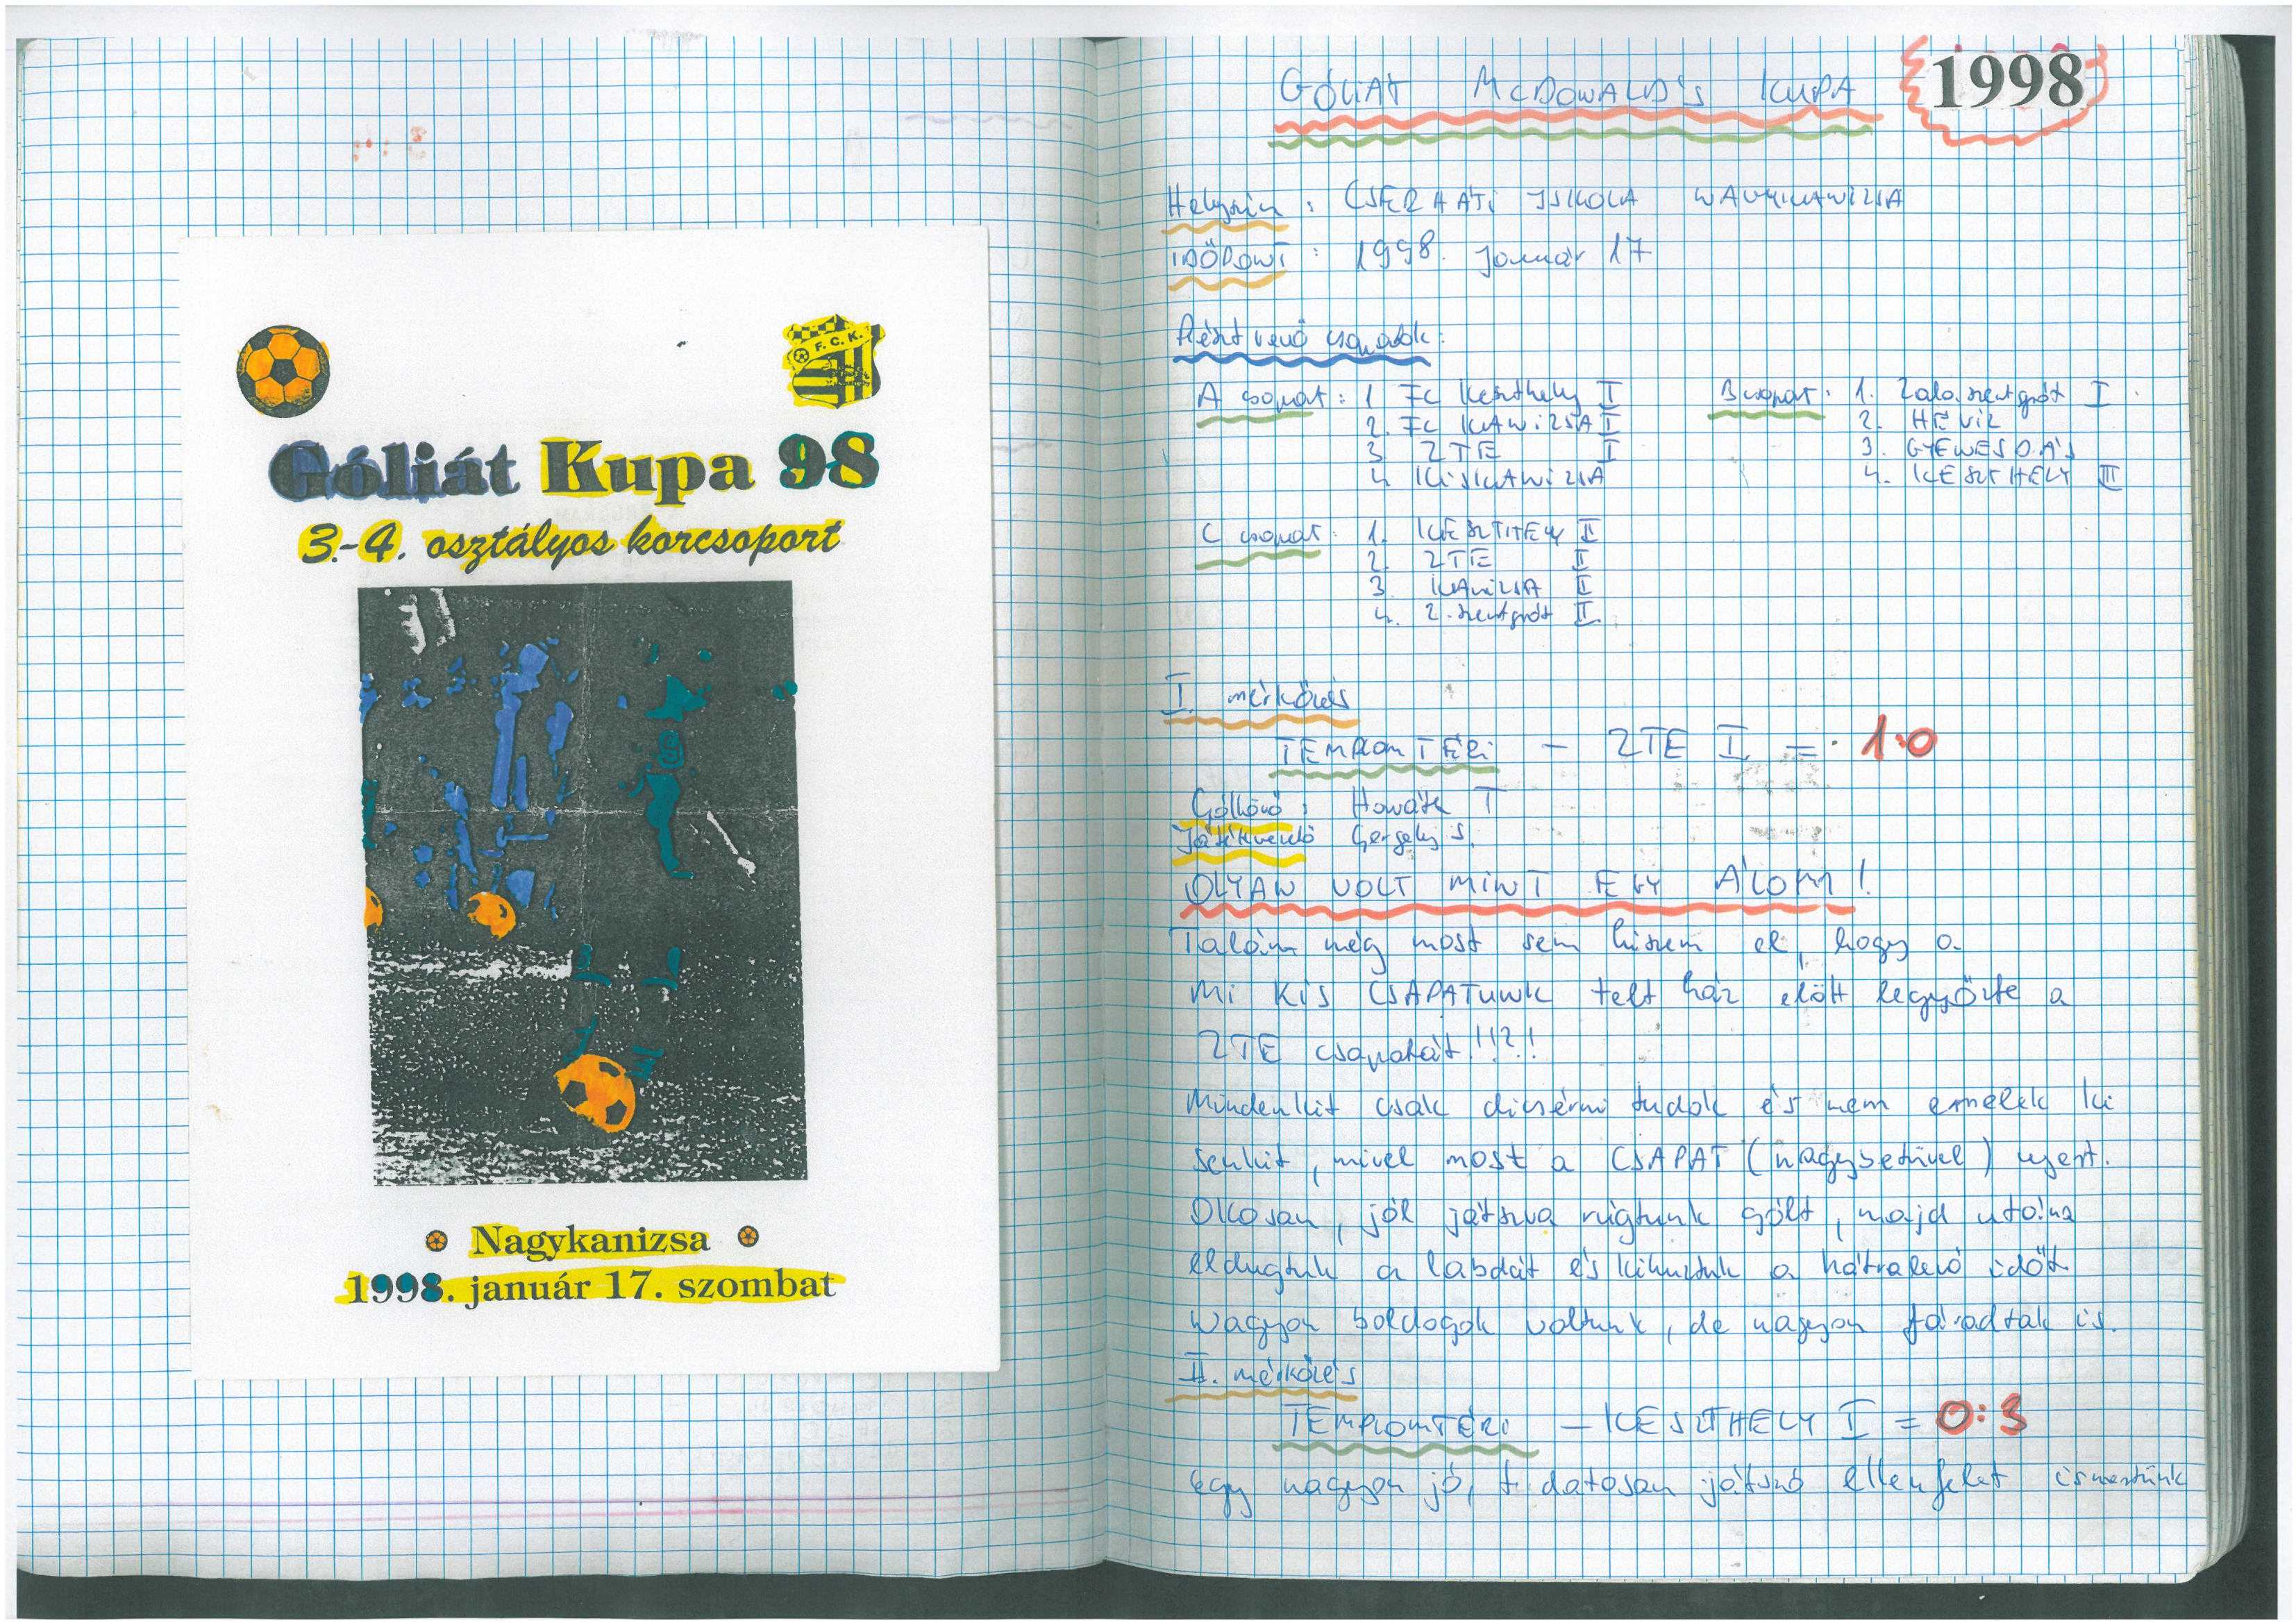 F. C. K.
Góliát Kupa 98
3.-4. osztályos korcsoport
Nagykanizsa
1998. január 17. szombat
GÓLIÁT McDONALD's KUPA 1998
Helyszín : CSERHÁTI ISKOLA NAGYKANIZSA
IDŐPONT : 1998. Január 17
Részt vevő csapatok:
A csoport : 1 Fc Keszthely I
2. Fc KANIZSA I
3 ZTE I
4 KISKANIZSA
B csoport : 1. Zalaszentgrót I
2. HÉVÍZ
3. GYENESDIÁS
4. KESZTHELY III
C csoport : 1. KESZTHELY II
2. ZTE II
3. KANIZSA II
4. Z.szentgrót II
I. mérkőzés
TEMPLOMTÉRI - ZTE I = 1:0
Góllövő : Horváth T
Játékvezető Gergely S.
OLYAN VOLT MINT EGY ÁLOM!
Talán még most sem hiszem el, hogy a
MI KIS CSAPATUNK telt ház előtt legyőzte a
ZTE csapatát!!!?!
Mindenkit csak dicsérni tudok és nem emelek ki
senkit, mivel most a CSAPAT (nagybetűvel) nyert.
Okosan, jól játszva rúgtunk gólt, majd utána
eldugtuk a labdát és kihúztuk a hátralevő időt
Nagyon boldogok voltunk, de nagyon fáradtak is.
II. mérkőzés
TEMPLOMTÉRI - KESZTHELY I = 0:3
Egy nagyon jó, tudatosan játszó ellenfelet ismertünk